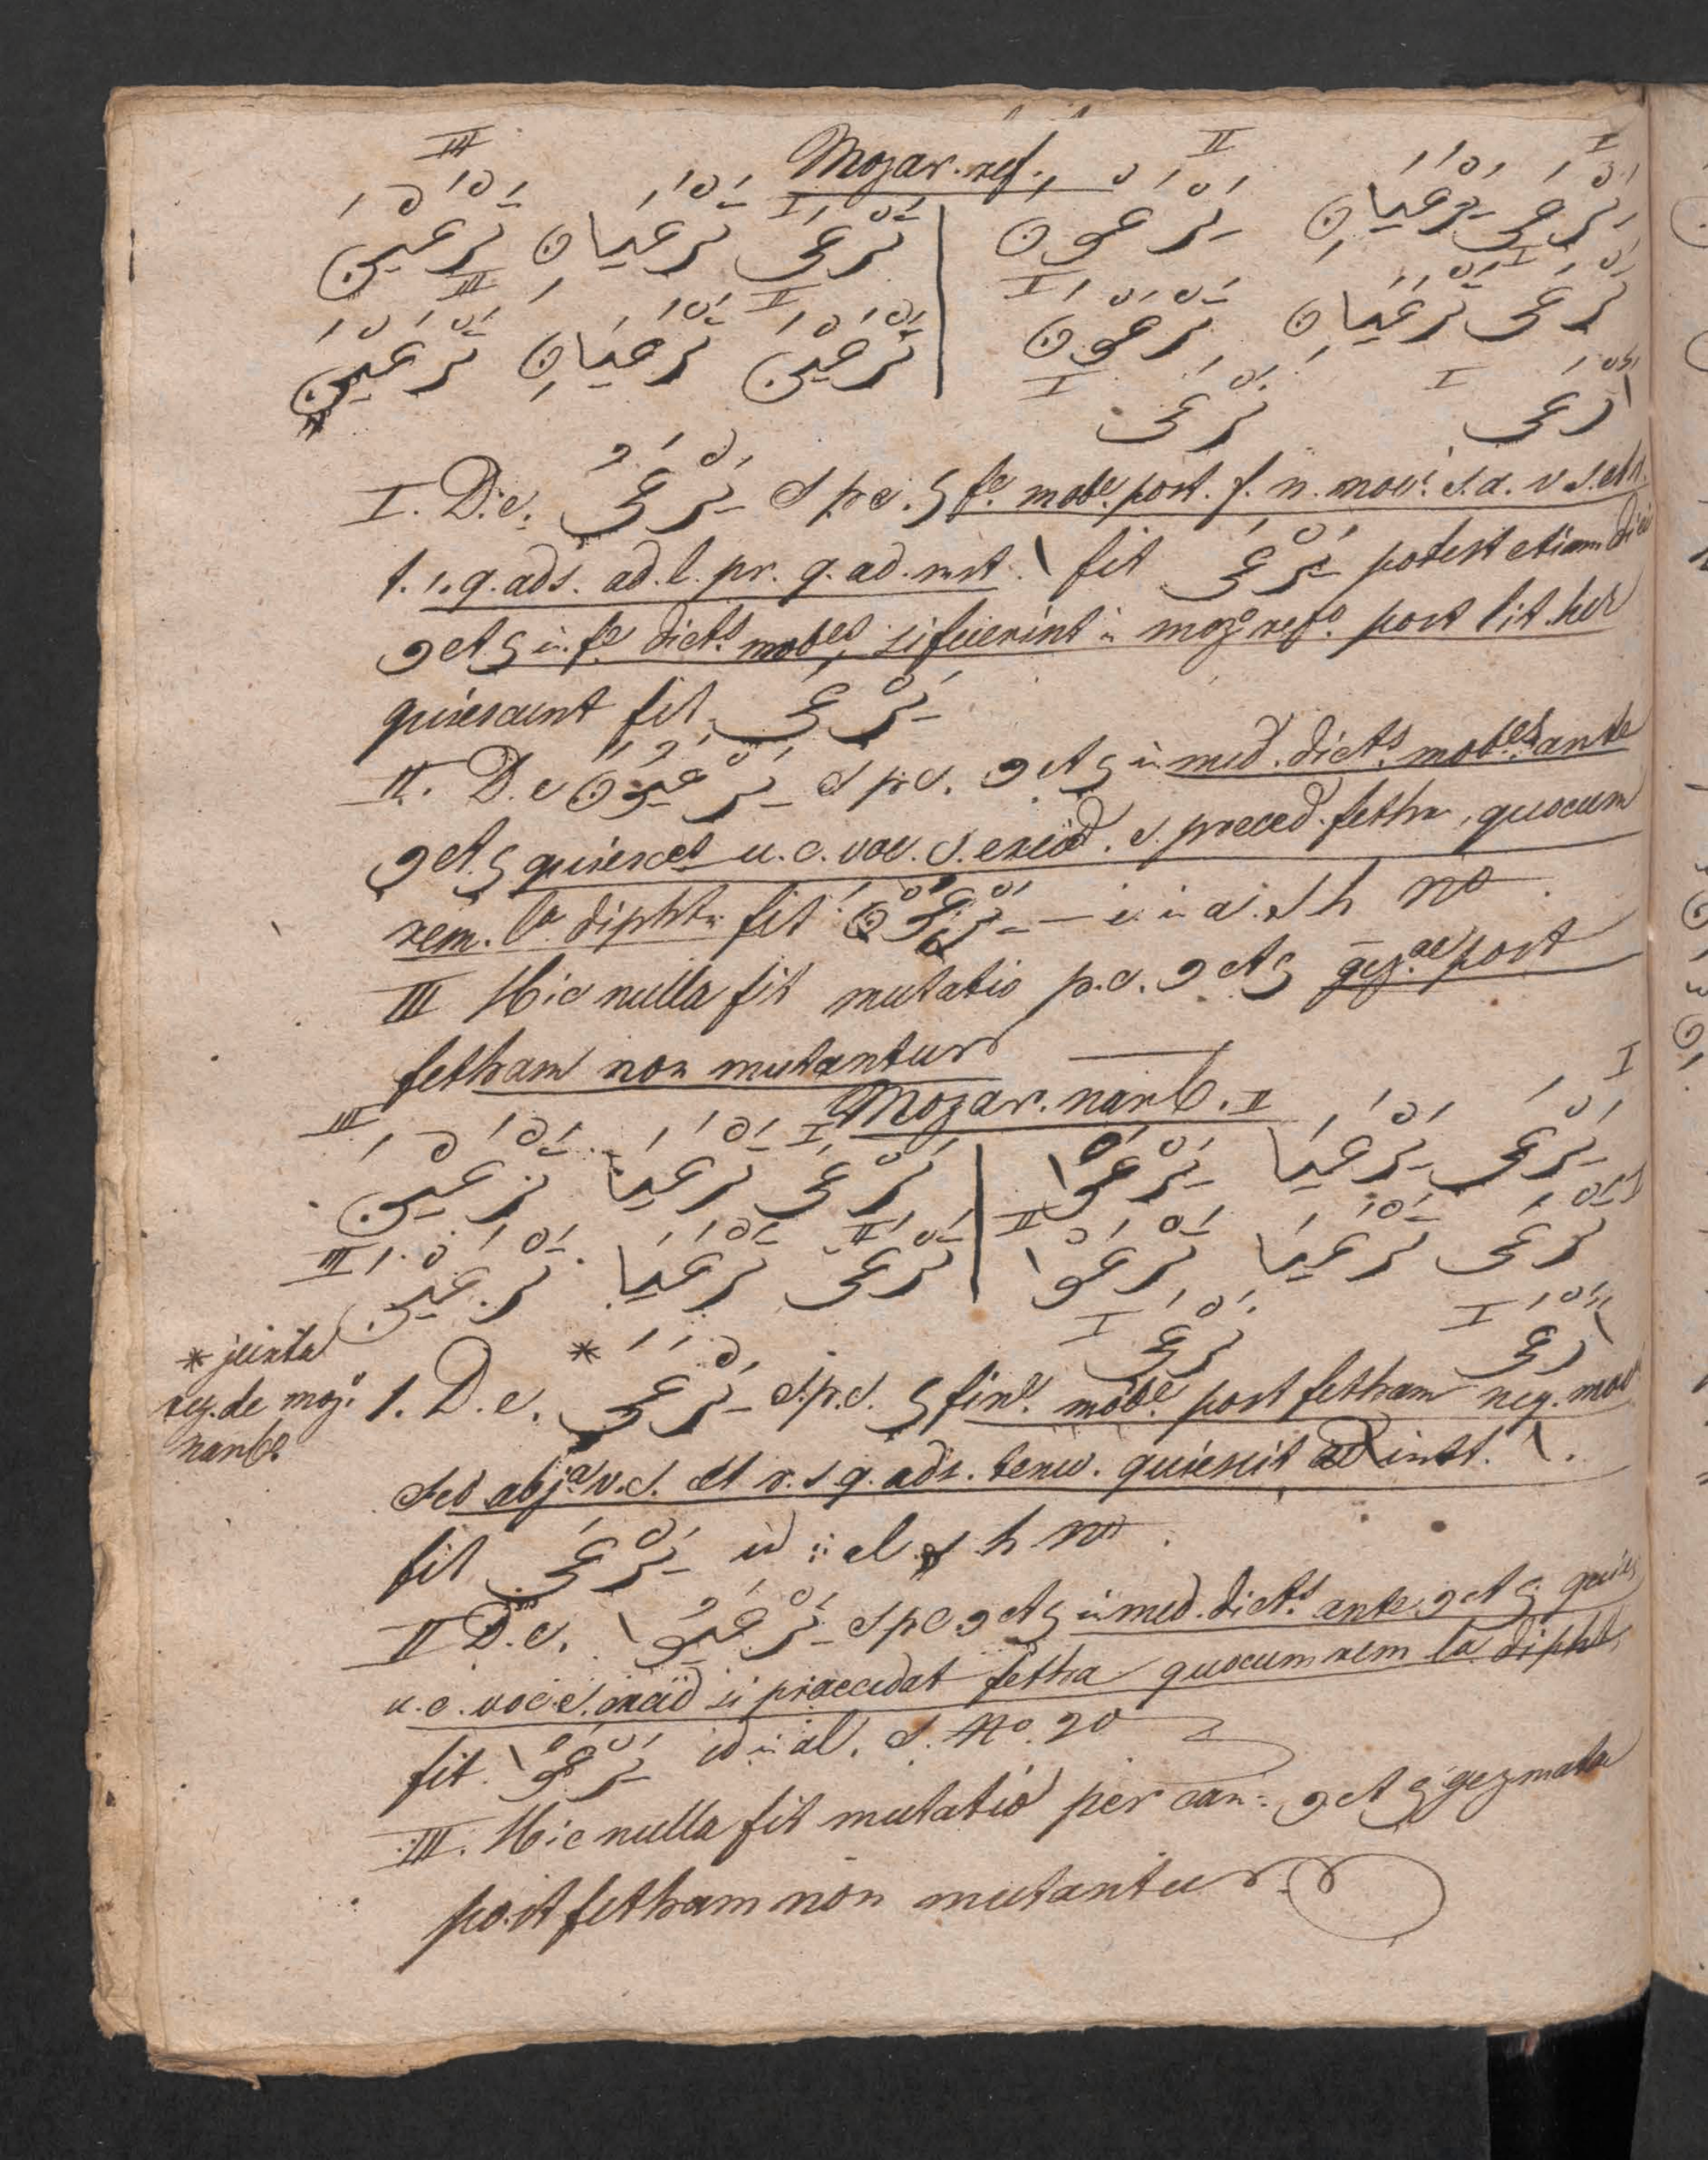 Mozar. ref.
I II I III
يَرْعَى يَرْعَيَانِ يَرْعَوْنَ | تَرْعَى تَرْعَيَانِ يَرْعَيْنَ
تَرْعَى تَرْعَيَانِ تَرْعَوْنَ | تَرْعَيْنَ تَرْعَيَانِ تَرْعَيْنَ
أَرْعَى نَرْعَى
I. D.e. يَرْعَىُ s p c. ي fe. mobe. post. f. n. movi. s. a. v s. et r.
t. s. q. ads. ad. l. pr. q. ad. inst. ا fit يَرْعَى potest etiam dici
و et ي in fe dicts mobes, si fuerint in mozo refo. post lit. her
quiescunt fit يَرْعَى
II. D. e يَرْعَيُونَ s p c. و et ي in med. dicts. mobes ante
و et ي quiesces u. c. voc. s. excid. s. preced. fetha, quocum
rem. la diphtn fit يَرْعَوْنَ — i. in a. s h no.
III Hic nulla fit mutatio p.c. و et ي gezae post
fetham non mutantur
Mozar. nanb.
I II I III
يَرْعَى يَرْعَيَا يَرْعَوْا | تَرْعَى تَرْعَيَا يَرْعَيْنَ
تَرْعَى تَرْعَيَا تَرْعَوْا | تَرْعَىْ تَرْعَيَا تَرْعَيْنَ
أَرْعَى نَرْعَى
* juxta
reg. de mozo.
nanbo
1. D. e. يَرْعَىَ * s.p.c. ي fine. mobe. post fetham neg. mov
sed abja v. s. et r. s q. ads. tenu. quiescit ad inst. ا.
fit يَرْعَى id in al s h no.
II D. e. يَرْعَيُوا s p c و et ي in med. dicts. ante و et ي quies
u. c. voc s. excid si praecedat fetha quocum rem la dipht
fit. يَرْعَوْا id in al. s. No. 20
III. Hic nulla fit mutatio per can. و et ي gezmata
post fetham non mutantur